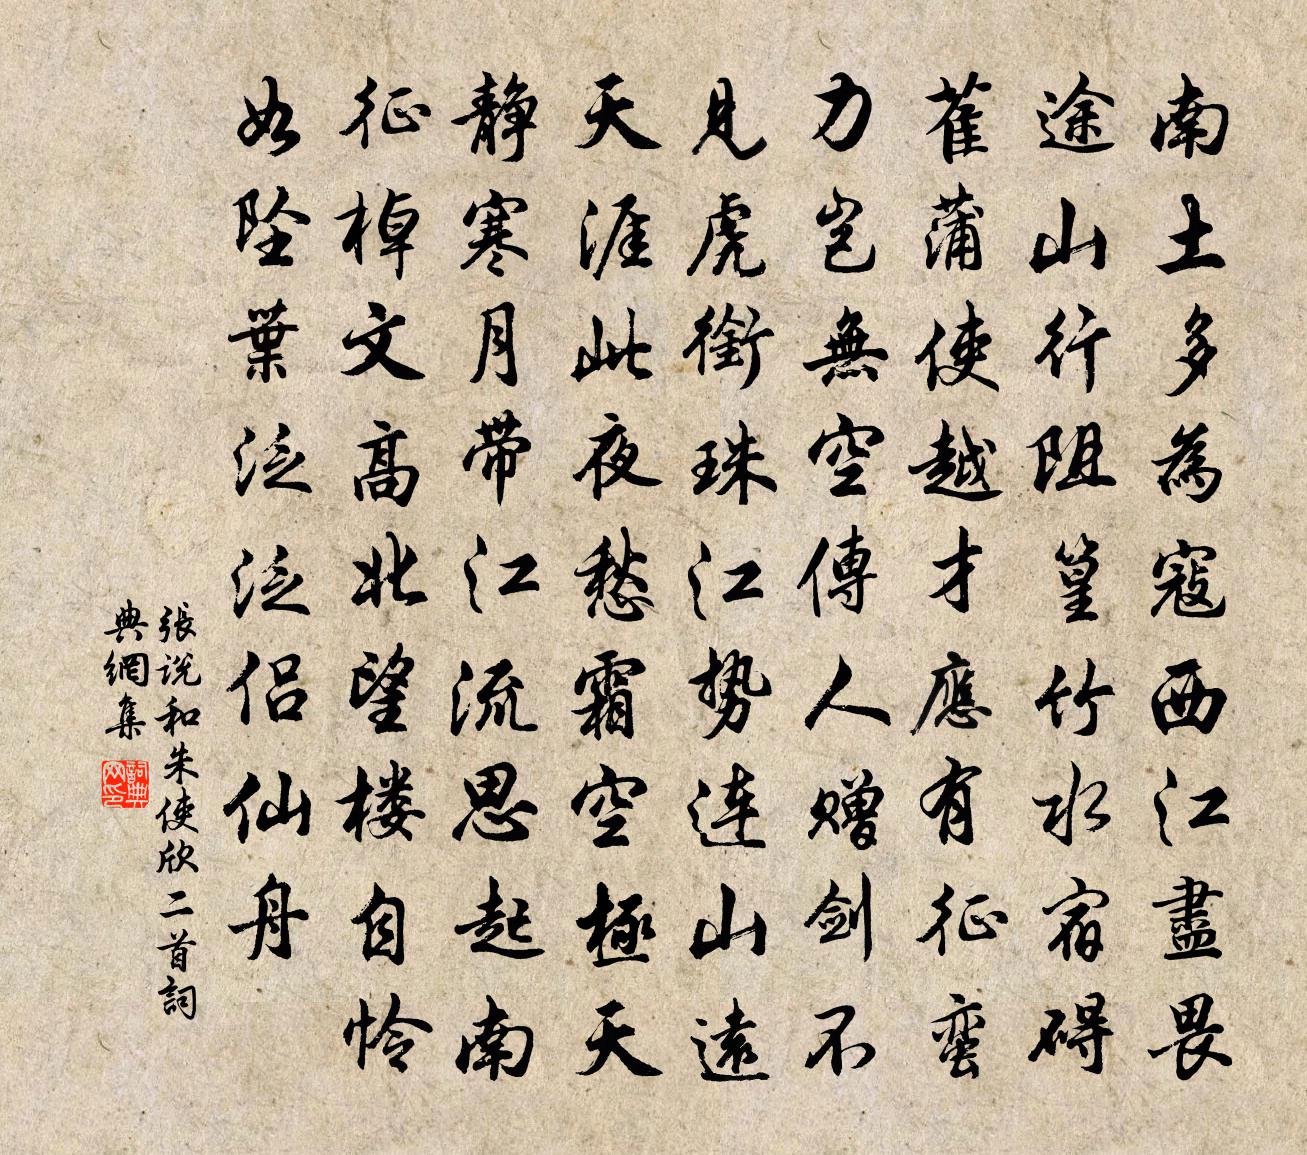 南土多為寇西江盡畏
途山行阻篁竹水宿碍
萑蒲使越才應有征蛮
力岂無空傳人赠剑不
見虎銜珠江势连山遠
天涯此夜愁霜空極天
静寒月带江流思起南
征棹文高北望楼自怜
如坠葉泛泛侣仙舟
張说和朱使欣二首詞
典網集
詞典网印